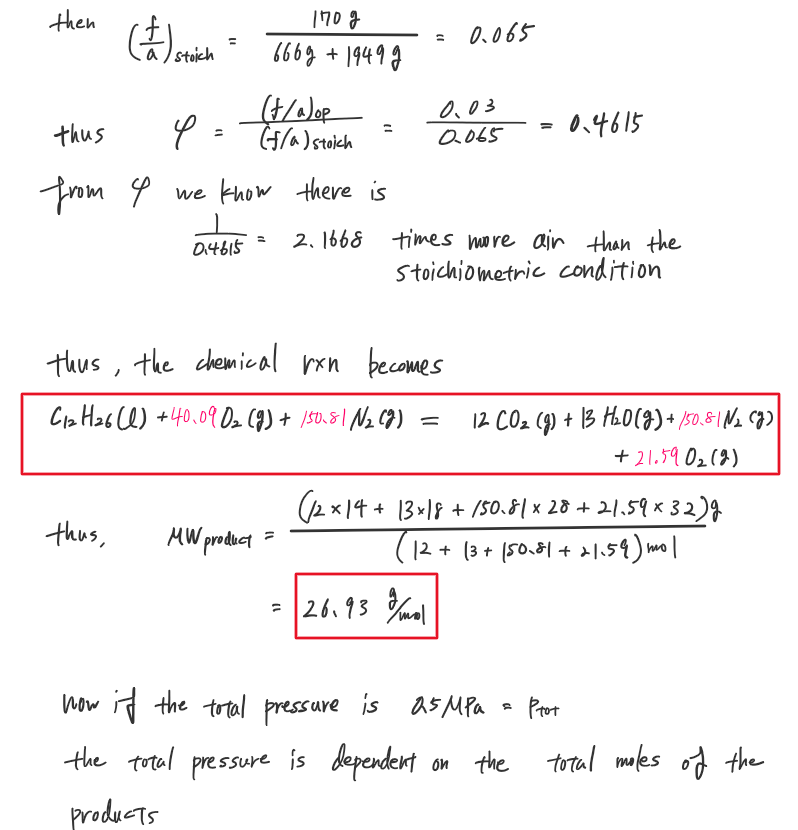 then (f/a)stoich = 170 g / (666g + 1949 g) = 0.065
thus φ = (f/a)op / (f/a)stoich = 0.03 / 0.065 = 0.4615
from φ we know there is
1 / 0.4615 = 2.1668 times more air than the
stoichiometric condition
thus, the chemical rxn becomes
C12H26(l) + 40.09 O2(g) + 150.81 N2(g) = 12 CO2(g) + 13 H2O(g) + 150.81 N2(g)
+ 21.59 O2(g)
thus, MWproduct = (12×14 + 13×18 + 150.81×28 + 21.59×32)g / (12 + 13 + 150.81 + 21.59)mol
= 26.93 g/mol
now if the total pressure is 25MPa = Ptot
the total pressure is dependent on the total moles of the
products